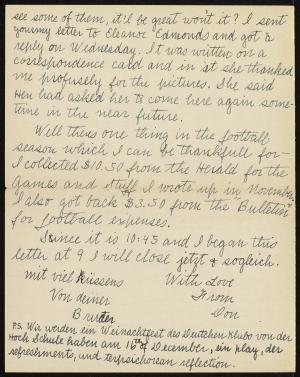 see some of them, it'll be great won't it? I sent
you my letter to Eleanor Edmonds and got a
reply on Wednesday. It was written on a
correspondence card and in it she thanked
me profusely for the pictures. She said
Hen had asked her to come here again some-
time in the near future.
Well theres one thing in the football
season which I can be thankfull for—
I collected $10.50 from the Herald for the
Games and Stuff I wrote up in November.
I also got back $3.50 from the "Bulletin"
for football expenses.
Since it is 10:45 and I began this
letter at 9 I will close jetzt & sogleich.
mit viel Küssens With Love
Von deiner From
Bruder Don
P.S. Wir werden ein Weinachtfest des Deutchen Klubs von der
Hoch Schule haben am 16th of December, ein play, der
refreshments, und terpsichorean reflection.